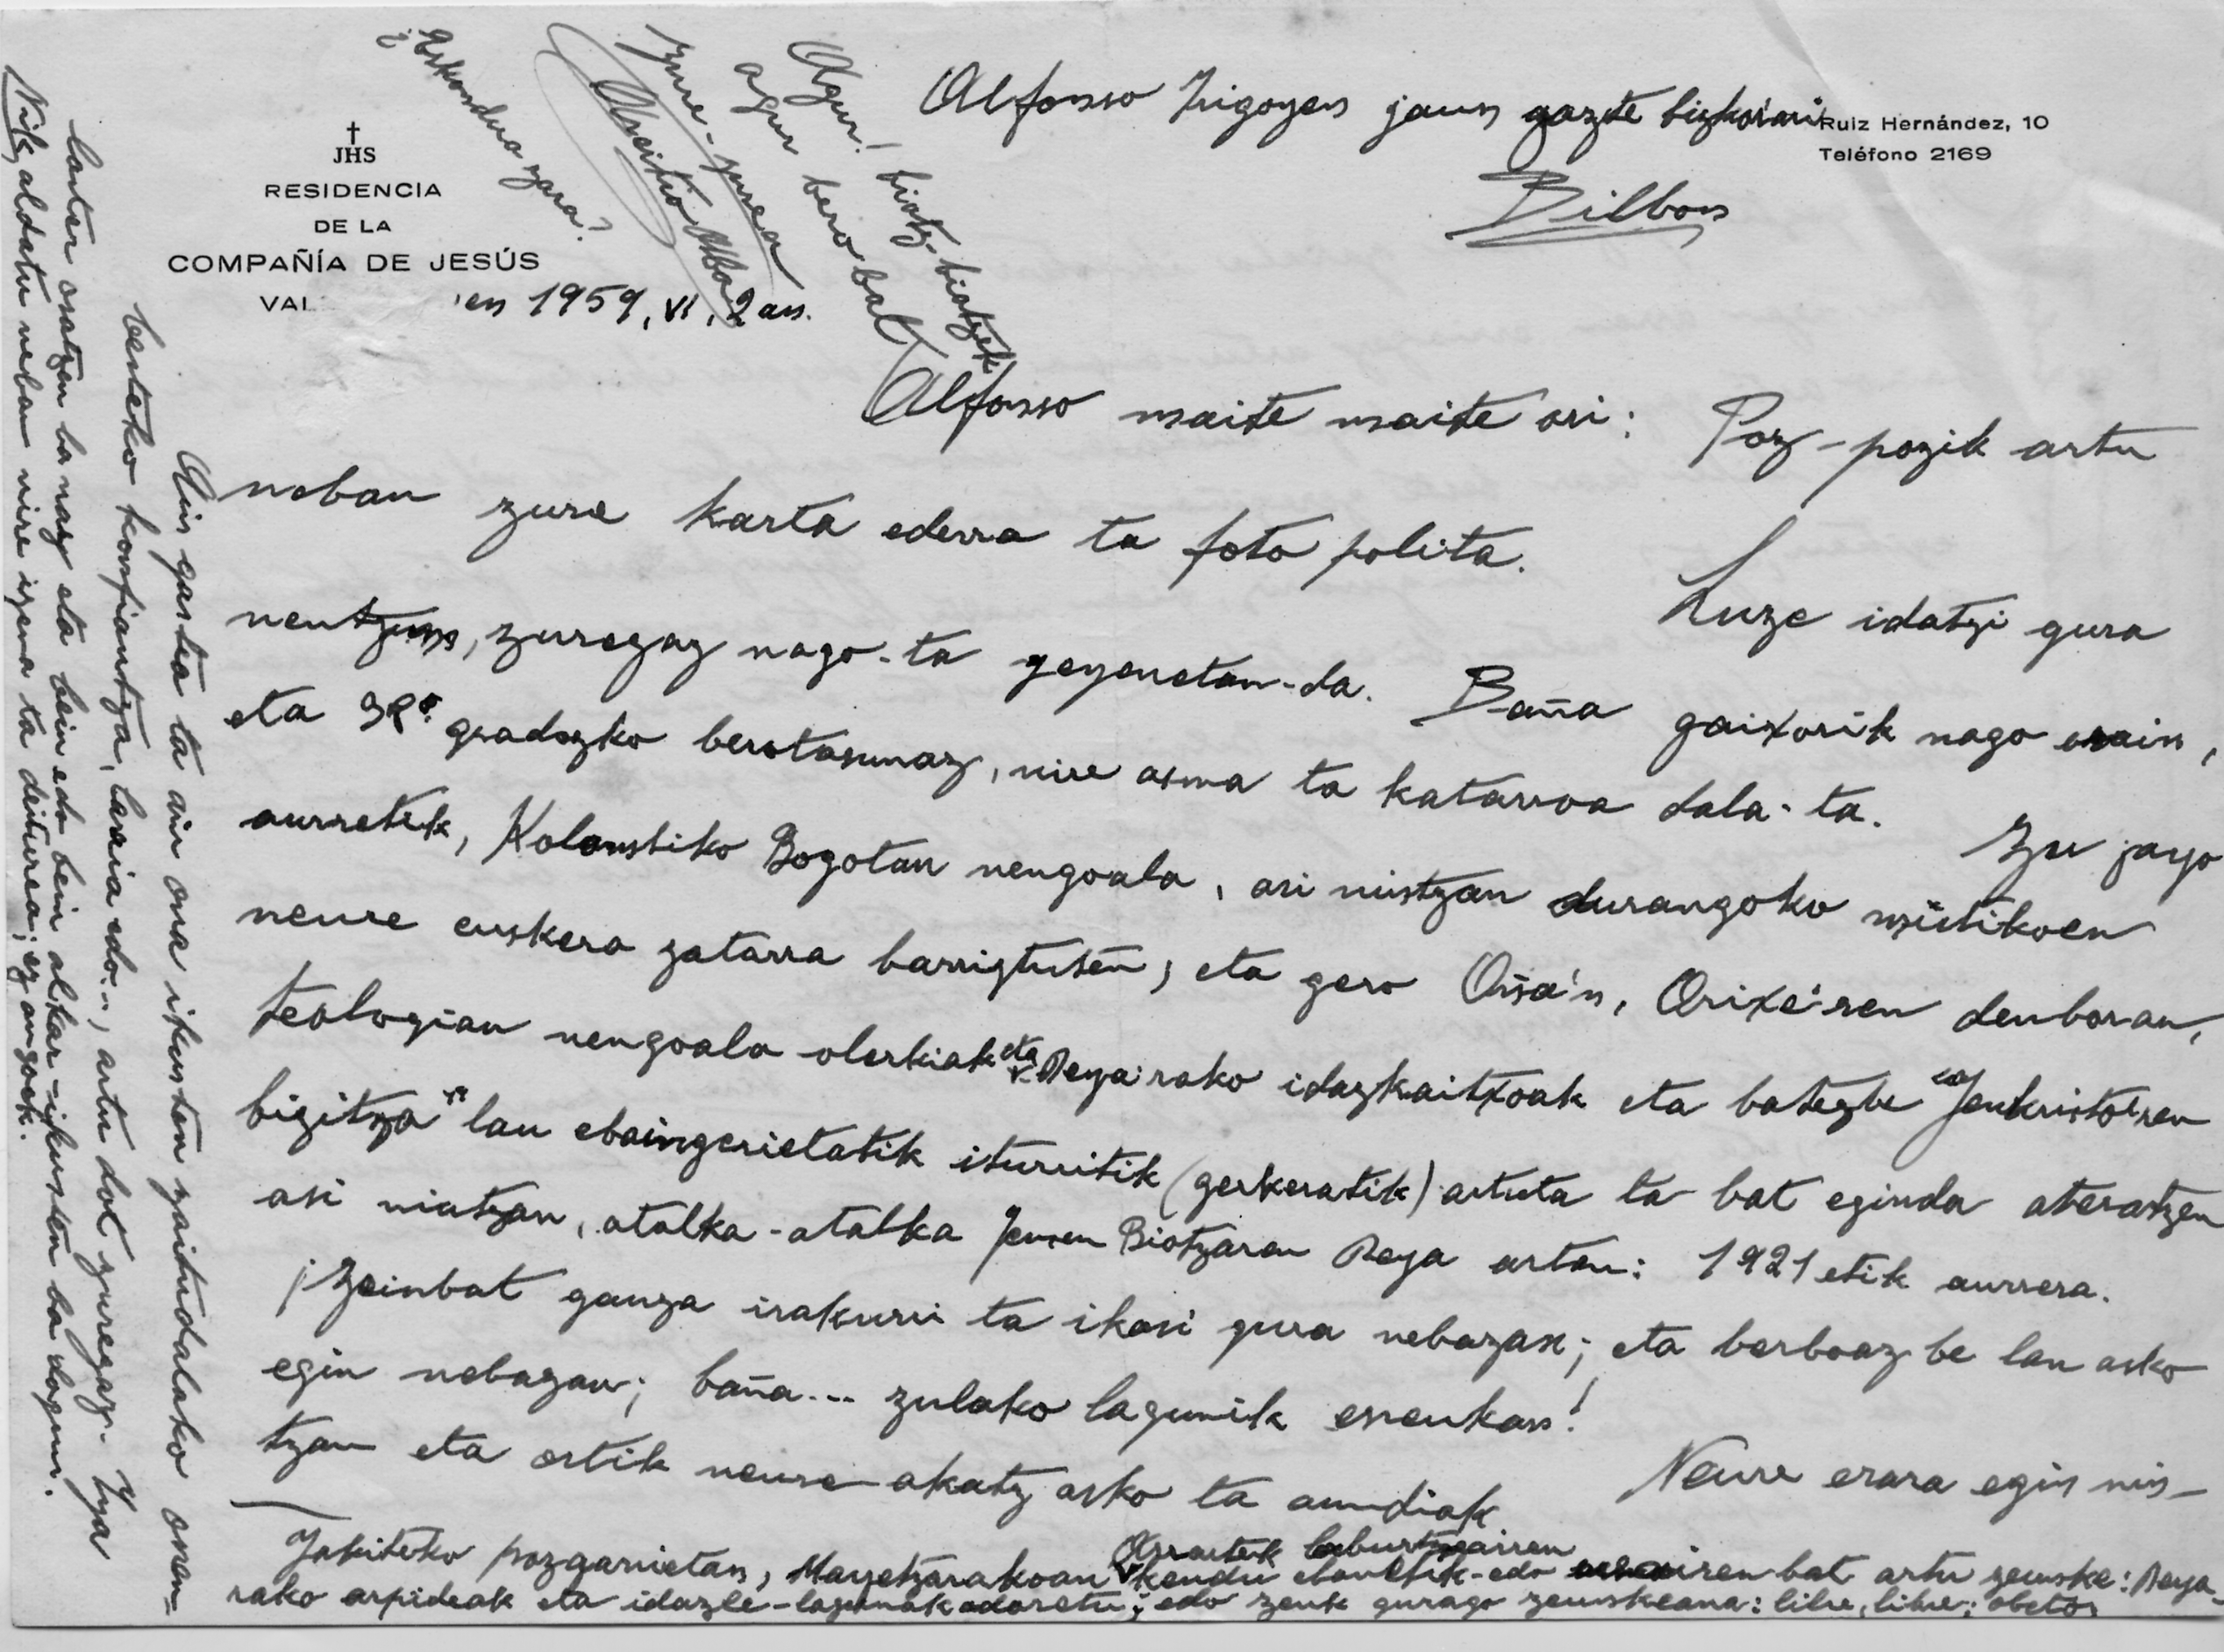 Alfonso Irigoyen jaun gazte bizkorrari
Ruiz Hernández, 10
Teléfono 2169
Bilbon
†
JHS
RESIDENCIA
DE LA
COMPAÑÍA DE JESÚS
VAL 'en 1959, VI, 2 an.
Agur! biotz-biotzetik
agur bero bat
zure-zurea
Areitio
¿Eskondua zara?
Alfonso maite maite ori: Poz-pozik artu
neban zure karta ederra ta foto polita.
Luze idatzi gura
neutzun, zuregaz nago-ta geyenetan-da. Baña gaixorik nago orain,
eta 38º gradozko berotasunaz, nire asma ta katarroa dala-ta.
Zu jayo
aurretik, Kolonbiko Bogotan nengoala, asi nintzan durangoko mistikoen
neure euskera zatarra barriztuten; eta gero Oña'n, Orixe'ren denboran,
teologian nengoala olerkiak eta Deya'rako idazkaitxoak eta batezbe "Jenkristo'ren
bizitza" lau ebaingerietatik iturritik (gerkeratik) artuta ta bat eginda ateratzen
asi nintzan, atalka-atalka Jesusen Biotzaren Deya artan: 1921 etik aurrera.
¡Zeinbat gauza irakurri ta ikasi gura nebazan; eta berboaz be lan asko
egin nebazan; baña... zulako lagunik eneukan!
Neure erara egin nin-
tzan eta ortik neure akatz asko ta aundiak
Jakiteko pozgarrietan, Mayetzarakoan kendu ebanetik-edo bat artu zeunske: Deya-
rako arpideak eta idazle-lagunak adoretu; edo zeuk gurago zeunskeana: libre, libre; obeto
Ain gaztea ta ain ona ikusten zaitudalako onen-
besteko konfiantza, laraia edo..., artu dot zuregaz. Zya
laster osatzen ba naz eta bein edo bein alkar-ikusten ba dogun.
Nik aldatu neban nire izena ta deiturea; ez angoak.